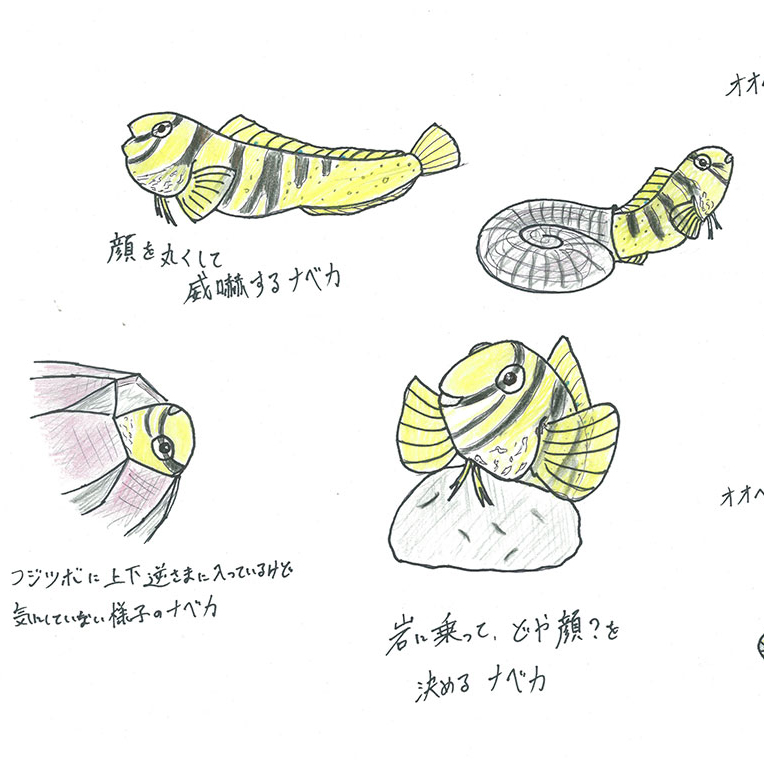 オオ
顔を丸くして
威嚇するナベカ
オオヘ
フジツボに上下逆さまに入っているけど
気にしていない様子のナベカ
岩に乗って、どや顔?を
決める ナベカ